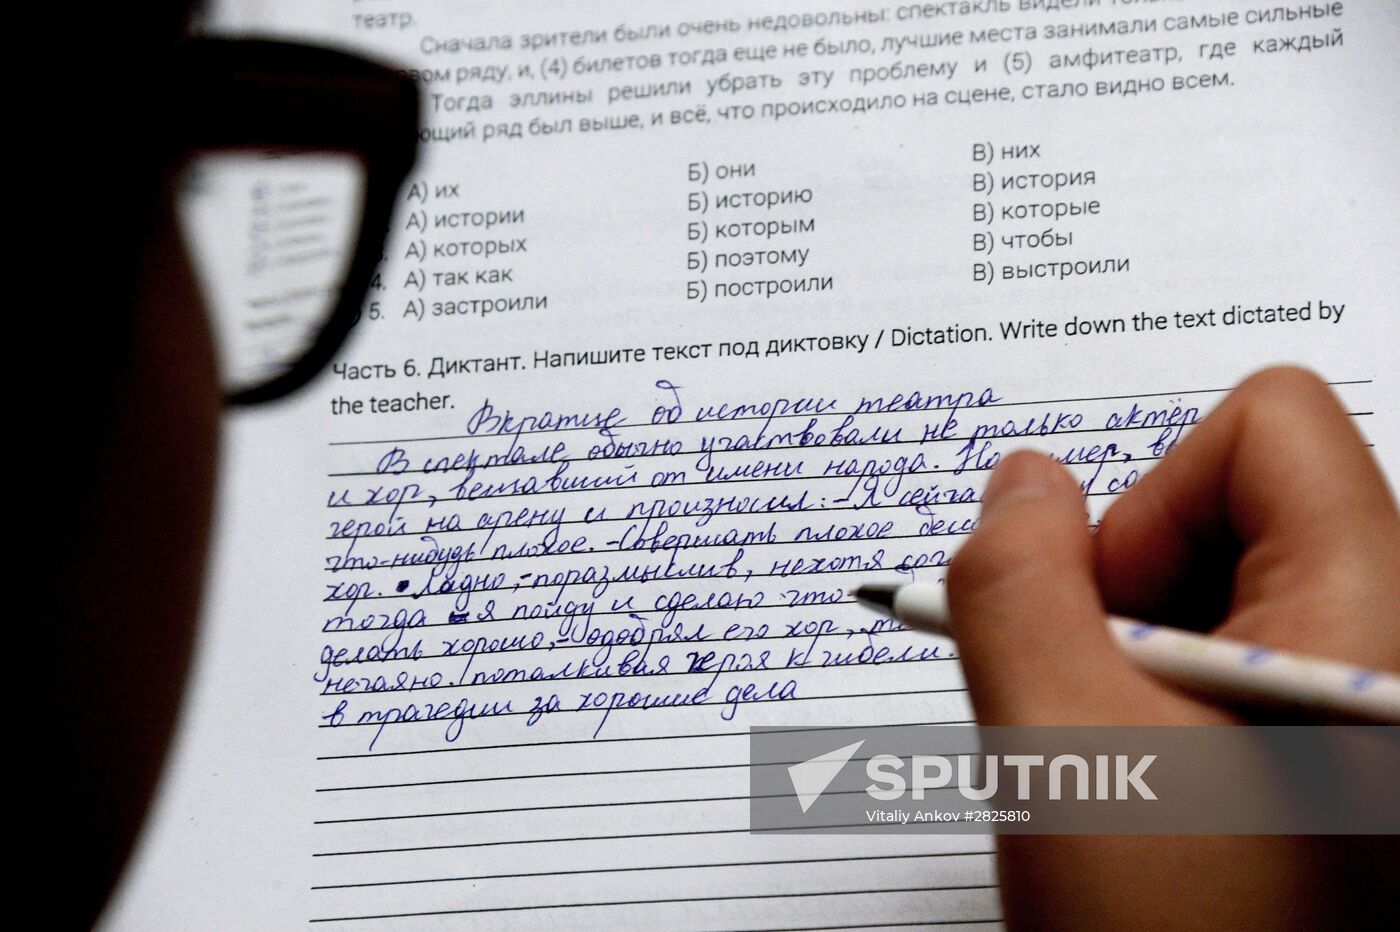 театр.
Сначала зрители были очень недовольны: спектакль видели
ряду, и, (4) билетов тогда еще не было, лучшие места занимали самые сильные
Тогда эллины решили убрать эту проблему и (5) амфитеатр, где каждый
ряд был выше, и всё, что происходило на сцене, стало видно всем.
А) их Б) они В) них
А) истории Б) историю В) история
А) которых Б) которым В) которые
4. А) так как Б) поэтому В) чтобы
5. А) застроили Б) построили В) выстроили
Часть 6. Диктант. Напишите текст под диктовку / Dictation. Write down the text dictated by
the teacher.
Вкратце об истории театра
В спектале обычно участвовали не только актёр
и хор, вещавший от имени народа.
герой на арену и произносил: - Я
что-нибудь плохое. - Совершать плохое
хор. Ладно, - поразмыслив, нехотя
тогда я пойду и сделаю что-
делать хорошо, - одобрял его хор,
нечаяно поталкивая героя к гибели.
в трагедии за хорошие дела
SPUTNIK
Vitaliy Ankov #2825810